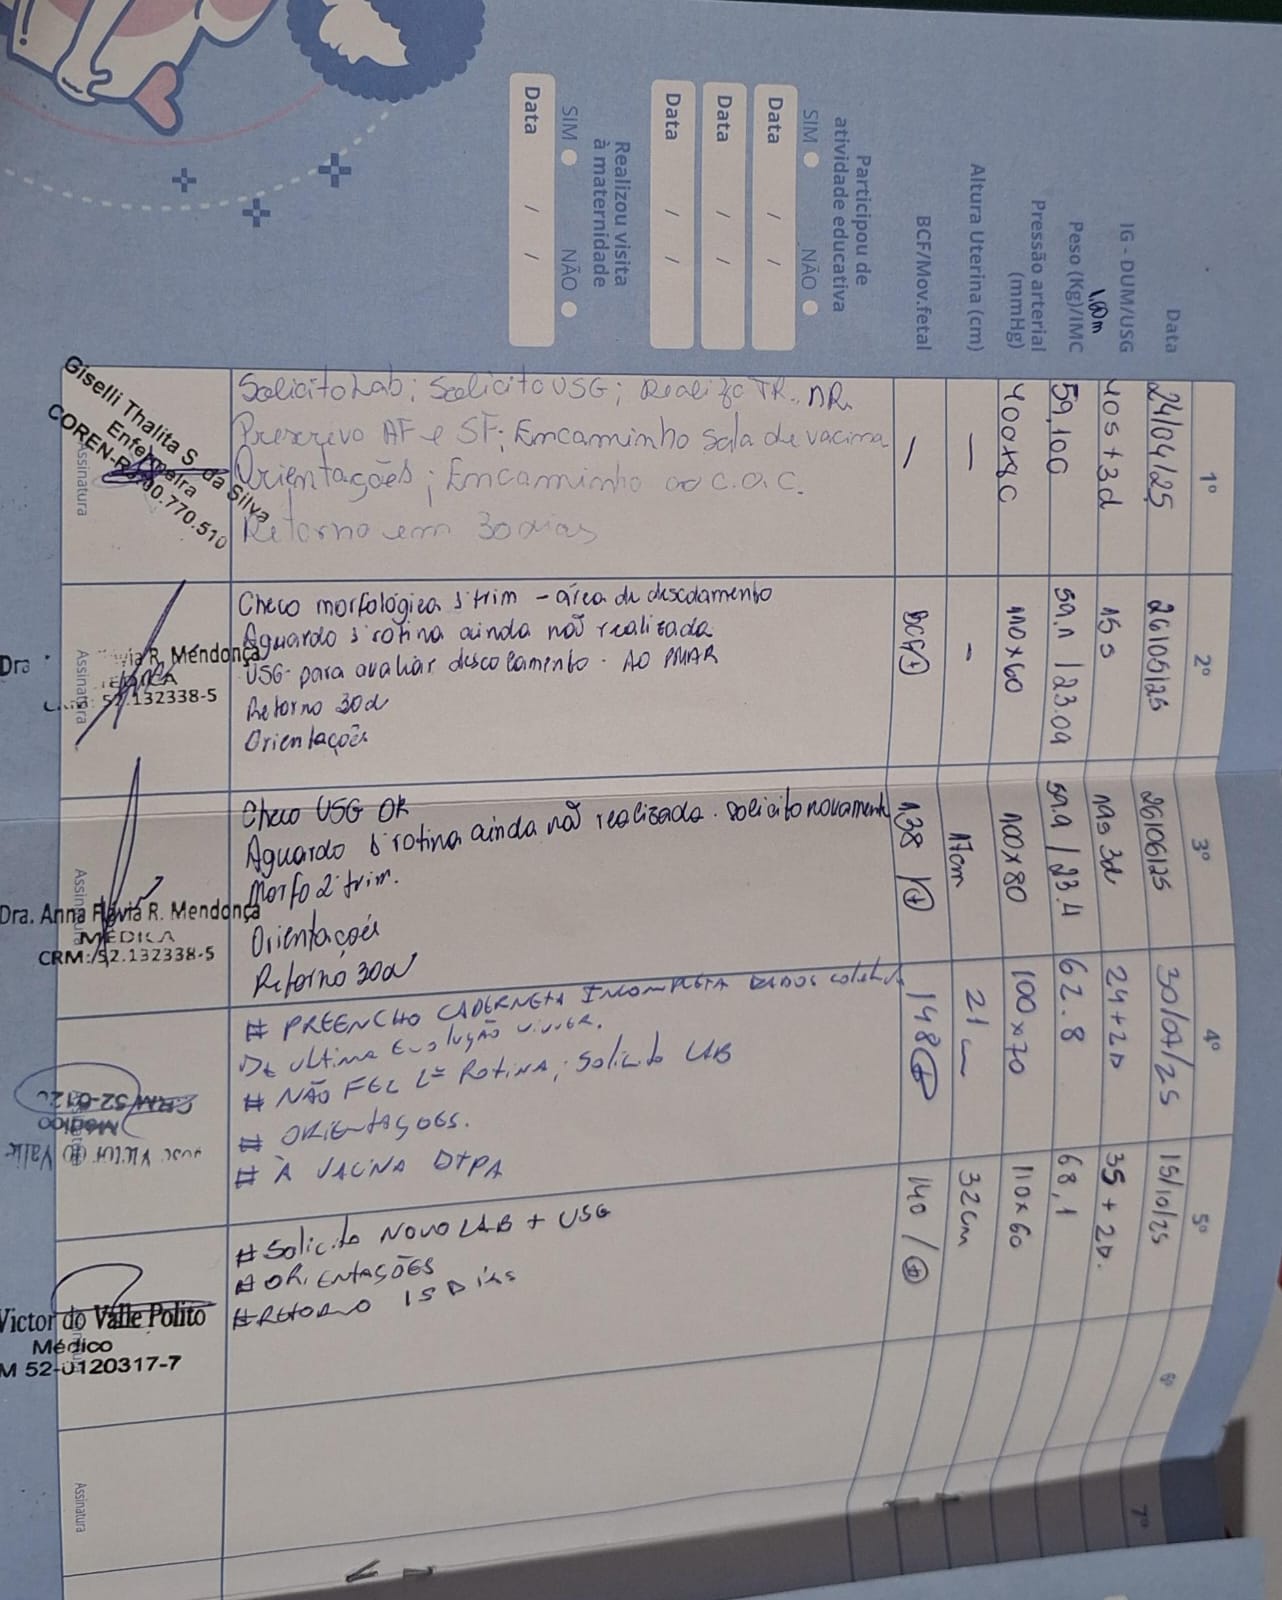 Data
IG - DUM/USG
1,60m
Peso (Kg)/IMC
Pressão arterial
(mmHg)
Altura Uterina (cm)
BCF/Mov.fetal
Participou de
atividade educativa
SIM NÃO
Data / /
Data / /
Data / /
Realizou visita
à maternidade
SIM NÃO
Data / /
1º
24/04/25
10s + 3d
59,100
100x80
—
Solicito Lab; Solicito USG; Realizo TR. NR.
Prescrevo AF e SF; Encaminho sala de vacina
Orientações; Encaminho ao C.O.C.
Retorno em 30 dias
Assinatura
Giselli Thalita S. da Silva
Enfermeira
2º
26/05/25
15s
59.1 / 23.09
110x60
-
BCF⊕
Checo morfológica 1º trim - área de descolamento
Aguardo 1ª rotina ainda não realizada
USG para avaliar descolamento. AO PMAR
Retorno 30d
Orientações
Assinatura
Mendonça
52.132338-5
3º
26/06/25
19s 3d
59.9 / 23.4
100x80
17cm
138 / ⊕
Checo USG OK
Aguardo 1ª rotina ainda não realizada. Solicito novamente
Morfo 2º trim.
Orientações
Retorno 30d
Dra. Anna Flávia R. Mendonça
MÉDICA
CRM: 52.132338-5
4º
30/07/25
24+2D
62.8
100x70
21 cm
148 ⊕
# PREENCHO CADERNETA INCOMPLETA DADOS
DE ULTIMA EVOLUÇÃO
# NÃO FEZ 1ª ROTINA; Solicito LAB
# ORIENTAÇOES.
# À VACINA DTPA
Médico
5º
15/10/25
35 + 2D.
68,1
110x60
32cm
140 / ⊕
# Solicito NOVO LAB + USG
# ORIENTAÇÕES
# RETORNO 15 DIAS
Victor do Valle Polito
Médico
M 52-0120317-7
6º
7º
Assinatura